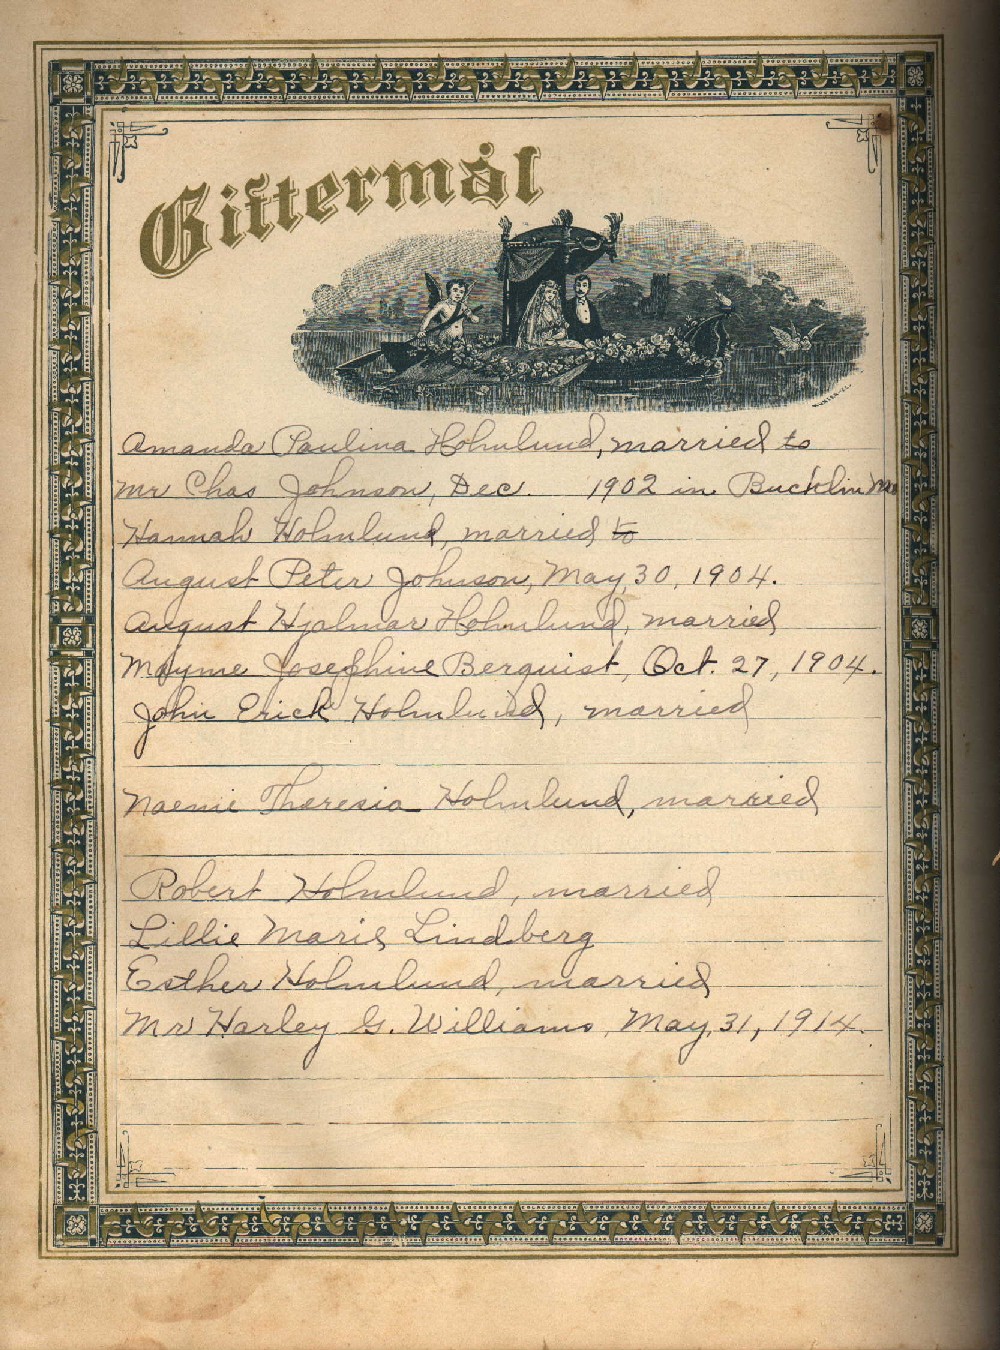 Giftermål
Amanda Paulina Holmlund, married to
Mr Chas Johnson, Dec. 1902 in Bucklin Mo
Hannah Holmlund, married to
August Peter Johnson, May, 30, 1904.
August Hjalmar Holmlund, married
Mayme Josephine Berquist, Oct. 27, 1904.
John Erick Holmlund, married
Naemi Theresia Holmlund, married
Robert Holmlund, married
Lillie Marie Lindberg
Esther Holmlund, married
Mr Harley G. Williams, May, 31, 1914.